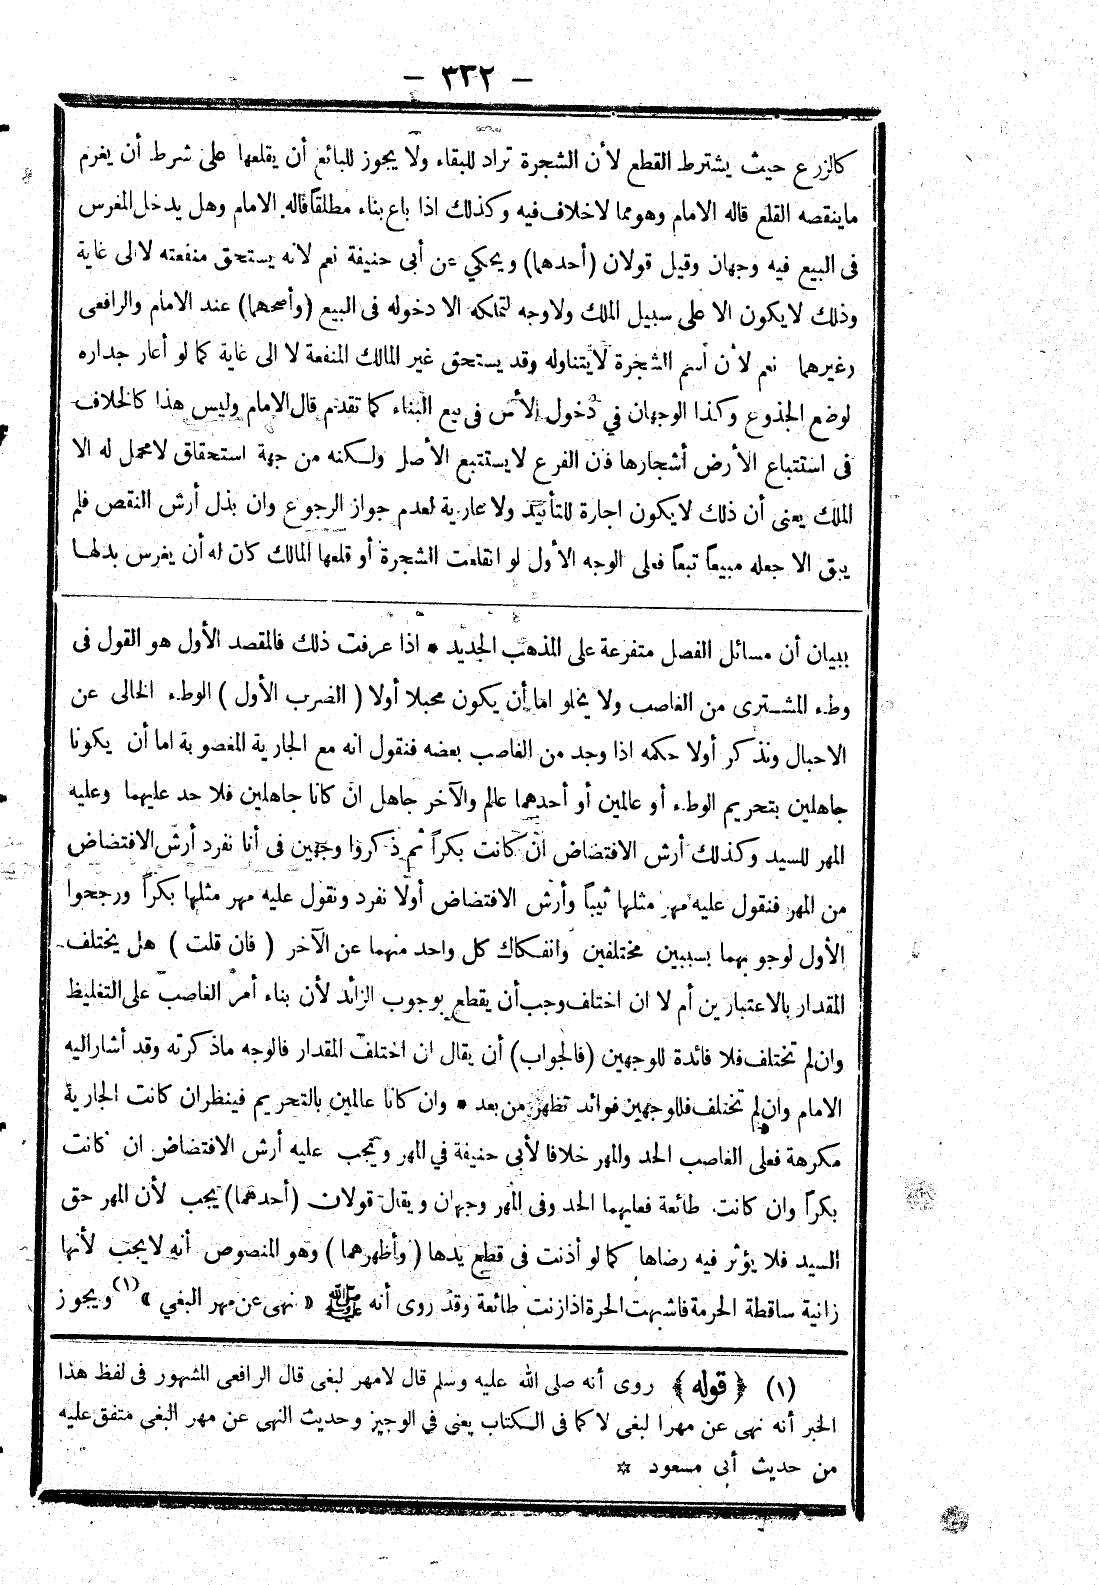 — ٣٣٢ —
كالزرع حيث يشترط القطع لأن الشجرة تراد للبقاء ولا يجوز للبائع أن يقلعها على شرط أن يغرم
ماينقصه القلع قاله الامام وهومما لاخلاف فيه وكذلك اذا باع بناء مطلقاً قاله الامام وهل يدخل المغرس
فى البيع فيه وجهان وقيل قولان (أحدهما) ويحكي عن أبى حنيفة نعم لانه يستحق منفعته لا الى غاية
وذلك لايكون الا على سبيل الملك ولاوجه لتملكه الا دخوله فى البيع (وأصحهما) عند الامام والرافعى
وغيرهما نعم لأن أسم الشجرة لايتناوله وقد يستحق غير المالك المنفعة لا الى غاية كما لو أعار جداره
لوضع الجذوع وكذا الوجهان في دخول الأس فى بيع البناء كما تقدم قال الامام وليس هذا كالخلاف
فى استتباع الأرض أشجارها فان الفرع لايستتبع الأصل ولكنه من جهة استحقاق لامحمل له الا
الملك يعنى أن ذلك لايكون اجارة للتأبيد ولا عارية لعدم جواز الرجوع وان بذل أرش النقص فلم
يبق الا جعله مبيعاً تبعاً فعلى الوجه الأول لو انقلعت الشجرة أو قلعها المالك كان له أن يغرس بدلها
ببيان أن مسائل الفصل متفرعة على المذهب الجديد * اذا عرفت ذلك فالمقصد الأول هو القول فى
وطء المشترى من الغاصب ولا يخلو اما أن يكون محبلا أولا ( الضرب الأول ) الوطء الخالى عن
الاحبال ونذكر أولا حكمه اذا وجد من الغاصب بعضه فنقول انه مع الجارية المغصوبة اما أن يكونا
جاهلين بتحريم الوطء أو عالمين أو أحدهما عالم والآخر جاهل ان كانا جاهلين فلا حد عليهما وعليه
المهر للسيد وكذلك أرش الافتضاض ان كانت بكراً ثم ذكروا وجهين فى أنا نفرد أرش الافتضاض
من المهر فنقول عليه مهر مثلها ثيباً وأرش الافتضاض أولا نفرد ونقول عليه مهر مثلها بكراً ورجحوا
الأول لوجوبهما بسببين مختلفين وانفكاك كل واحد منهما عن الآخر ( فان قلت ) هل يختلف
المقدار بالاعتبارين أم لا ان اختلف وجب أن يقطع بوجوب الزائد لأن بناء أمر الغاصب على التغليظ
وان لم تختلف فلا فائدة للوجهين (فالجواب) أن يقال ان اختلف المقدار فالوجه ماذكرته وقد أشار اليه
الامام وان لم تختلف فللوجهين فوائد تظهر من بعد * وان كانا عالمين بالتحريم فينظران كانت الجارية
مكرهة فعلى الغاصب الحد والمهر خلافا لأبى حنيفة في المهر ويجب عليه أرش الافتضاض ان كانت
بكراً وان كانت طائعة فعليهما الحد وفى المهر وجهان ويقال قولان (أحدهما) يجب لأن المهر حق
السيد فلا يؤثر فيه رضاها كما لو أذنت فى قطع يدها ( وأظهرهما ) وهو المنصوص أنه لايجب لأنها
زانية ساقطة الحرمة فاشبهت الحرة اذا زنت طائعة وقد روى أنه ﷺ « نهى عن مهر البغي » (١) ويجوز
(١) ﴿ قوله ﴾ روى أنه صلى الله عليه وسلم قال لامهر لبغى قال الرافعى المشهور فى لفظ هذا
الخبر أنه نهى عن مهرا لبغى لا كما فى الكتاب يعنى في الوجيز وحديث النهى عن مهر البغى متفق عليه
من حديث أبى مسعود ✡